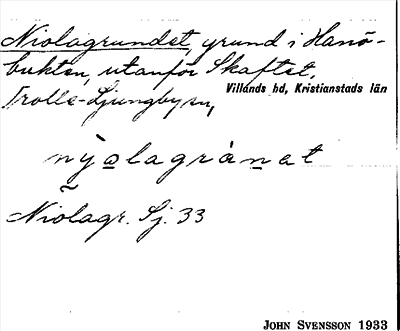 Niolagrundet, grund i Hanö-
bukten, utanför Skaftet,
Trolle-Ljungby sn,
Villands hd, Kristianstads län
nỳolagránet
Niolagr. Sj. 33
JOHN SVENSSON 1933